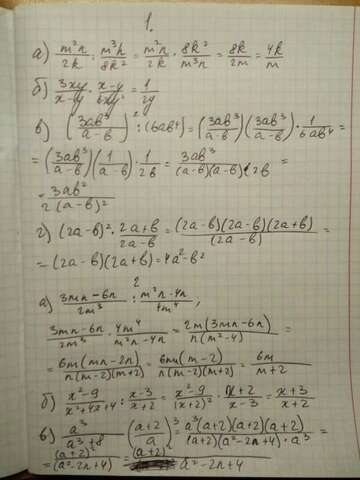 1.
а) m²n/2k : m³n/8k² = m²n/2k · 8k²/m³n = 8k/2m = 4k/m
б) 3xy/x-y · x-y/6xy² = 1/2y
в) (3ab³/a-b)² : (6ab⁴) = (3ab³/a-b)(3ab³/a-b) · 1/6ab⁴ =
= (3ab³/a-b)(1/a-b) · 1/2b = 3ab³/(a-b)(a-b)·2b =
= 3ab²/2(a-b)²
г) (2a-b)² · 2a+b/2a-b = (2a-b)(2a-b)(2a+b)/(2a-b) =
= (2a-b)(2a+b) = 4a²-b²
2
а) 3mn-6n/2m³ : m²n-4n/4m⁴ ;
3mn-6n/2m³ · 4m⁴/m²n-4n = 2m(3mn-6n)/n(m²-4) =
= 6m(mn-2n)/n(m-2)(m+2) = 6mn(m-2)/n(m-2)(m+2) = 6m/m+2
б) x²-9/x²+4x+4 : x-3/x+2 = x²-9/(x+2)² · x+2/x-3 = x+3/x+2
в) a³/a³+8 (a+2/a)³ = a³(a+2)(a+2)(a+2)/(a+2)(a²-2a+4)·a³ =
= (a+2)²/(a²-2a+4) = (a+2)²/a²-2a+4